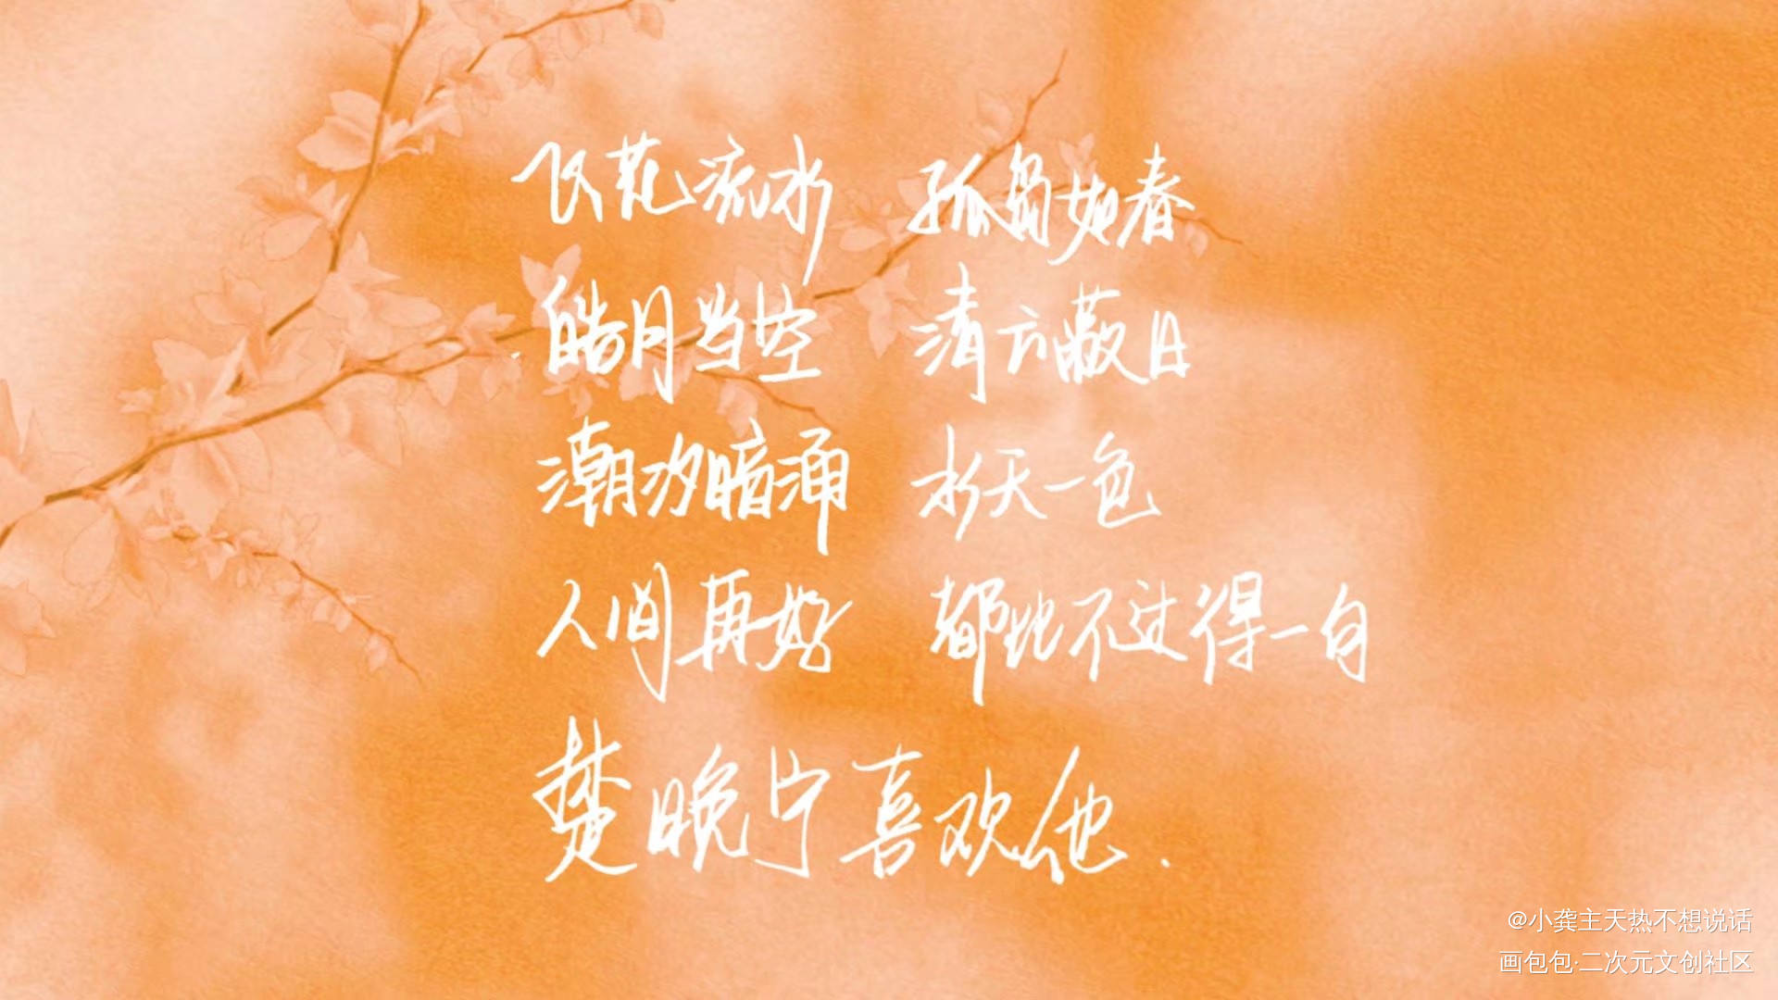 飞花流水 孤岛如春
皓月当空 清云蔽日
潮汐暗涌 水天一色
人间再好 都比不过得一句
楚晚宁喜欢他.
@小龚主天热不想说话
画包包·二次元文创社区